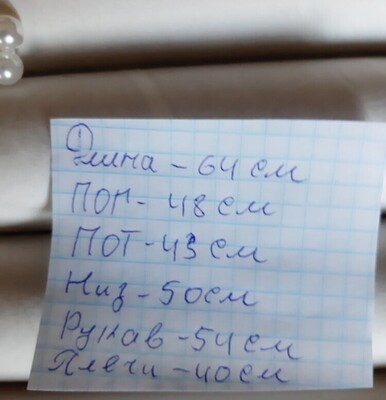 ①
Длина - 64 см
ПОГ - 48 см
ПОТ - 43 см
Низ - 50см
Рукав - 54 см
Плечи - 40см